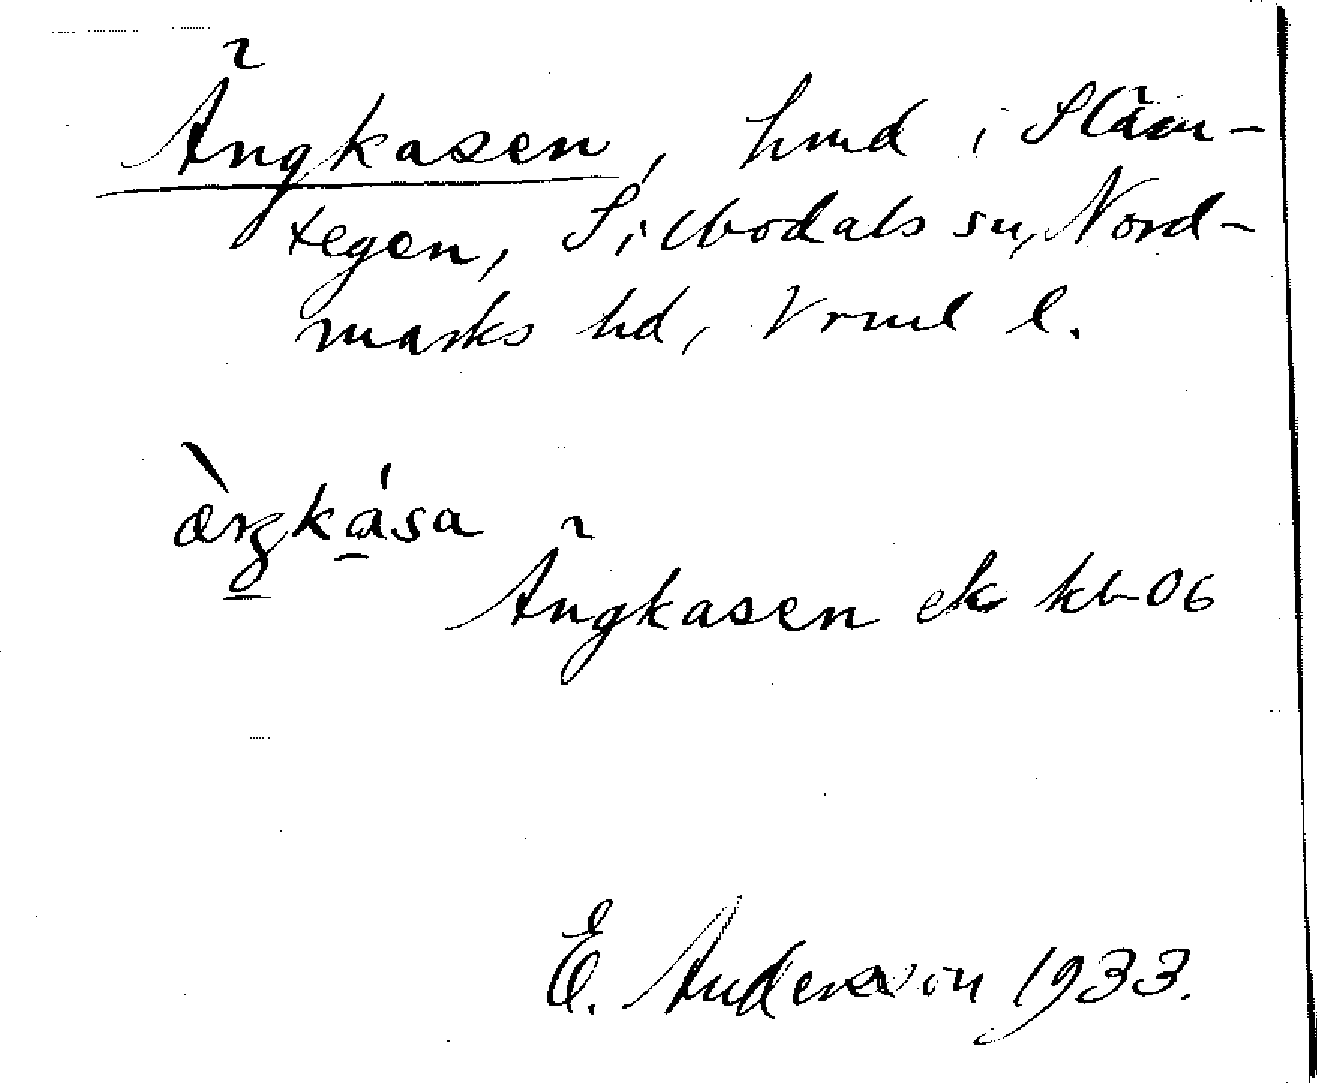 Ängkasen, hmd i Släm-
tegen, Silbodals sn, Nord-
marks hd, Vrml l.
ængkása
Ängkasen ek kb 06
E. Andersson 1933.